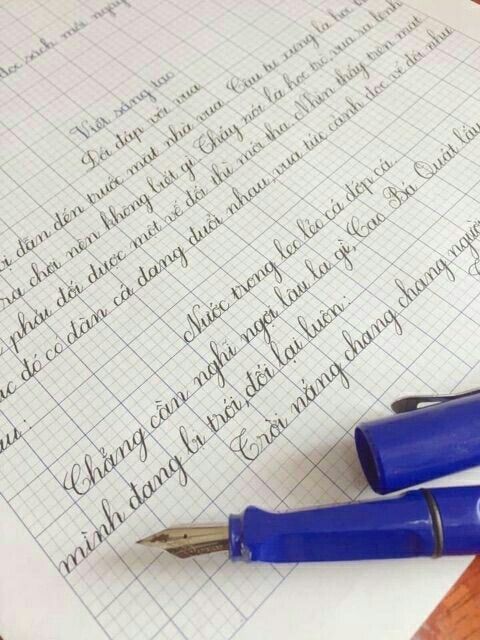 đọc sách mỗi ngày
Viết sáng tạo
Đối đáp với vua
bị dẫn đến trước mặt nhà vua. Cậu tự xưng là học
ra chơi nên không biết gì. Thấy nói là học trò, vua ra lệnh
phải đối được một vế đối thì mới tha. Nhìn thấy trên mặt
lúc đó có đàn cá đang đuổi nhau, vua tức cảnh đọc vế đối như
sau:
Nước trong leo lẻo cá đớp cá.
Chẳng cần nghĩ ngợi lâu la gì, Cao Bá Quát lấy
mình đang bị trói, đối lại luôn:
Trời nắng chang chang người